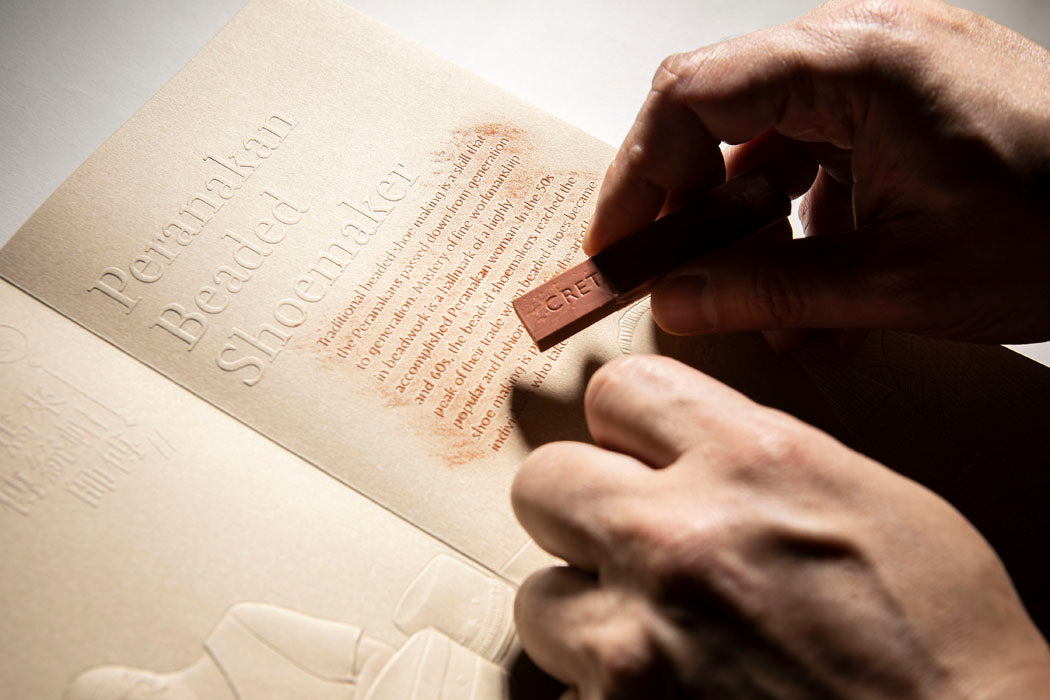 Peranakan
Beaded
Shoemaker
Traditional beaded shoe making is a skill that
the Peranakans passed down from generation
to generation. Mastery of fine workmanship
in beadwork is a hallmark of a highly
accomplished Peranakan woman. In the 50s
and 60s, the beaded shoemakers reached the
peak of their trade when beaded shoes became
popular and fashion the art of
shoe making is
who take
CRET